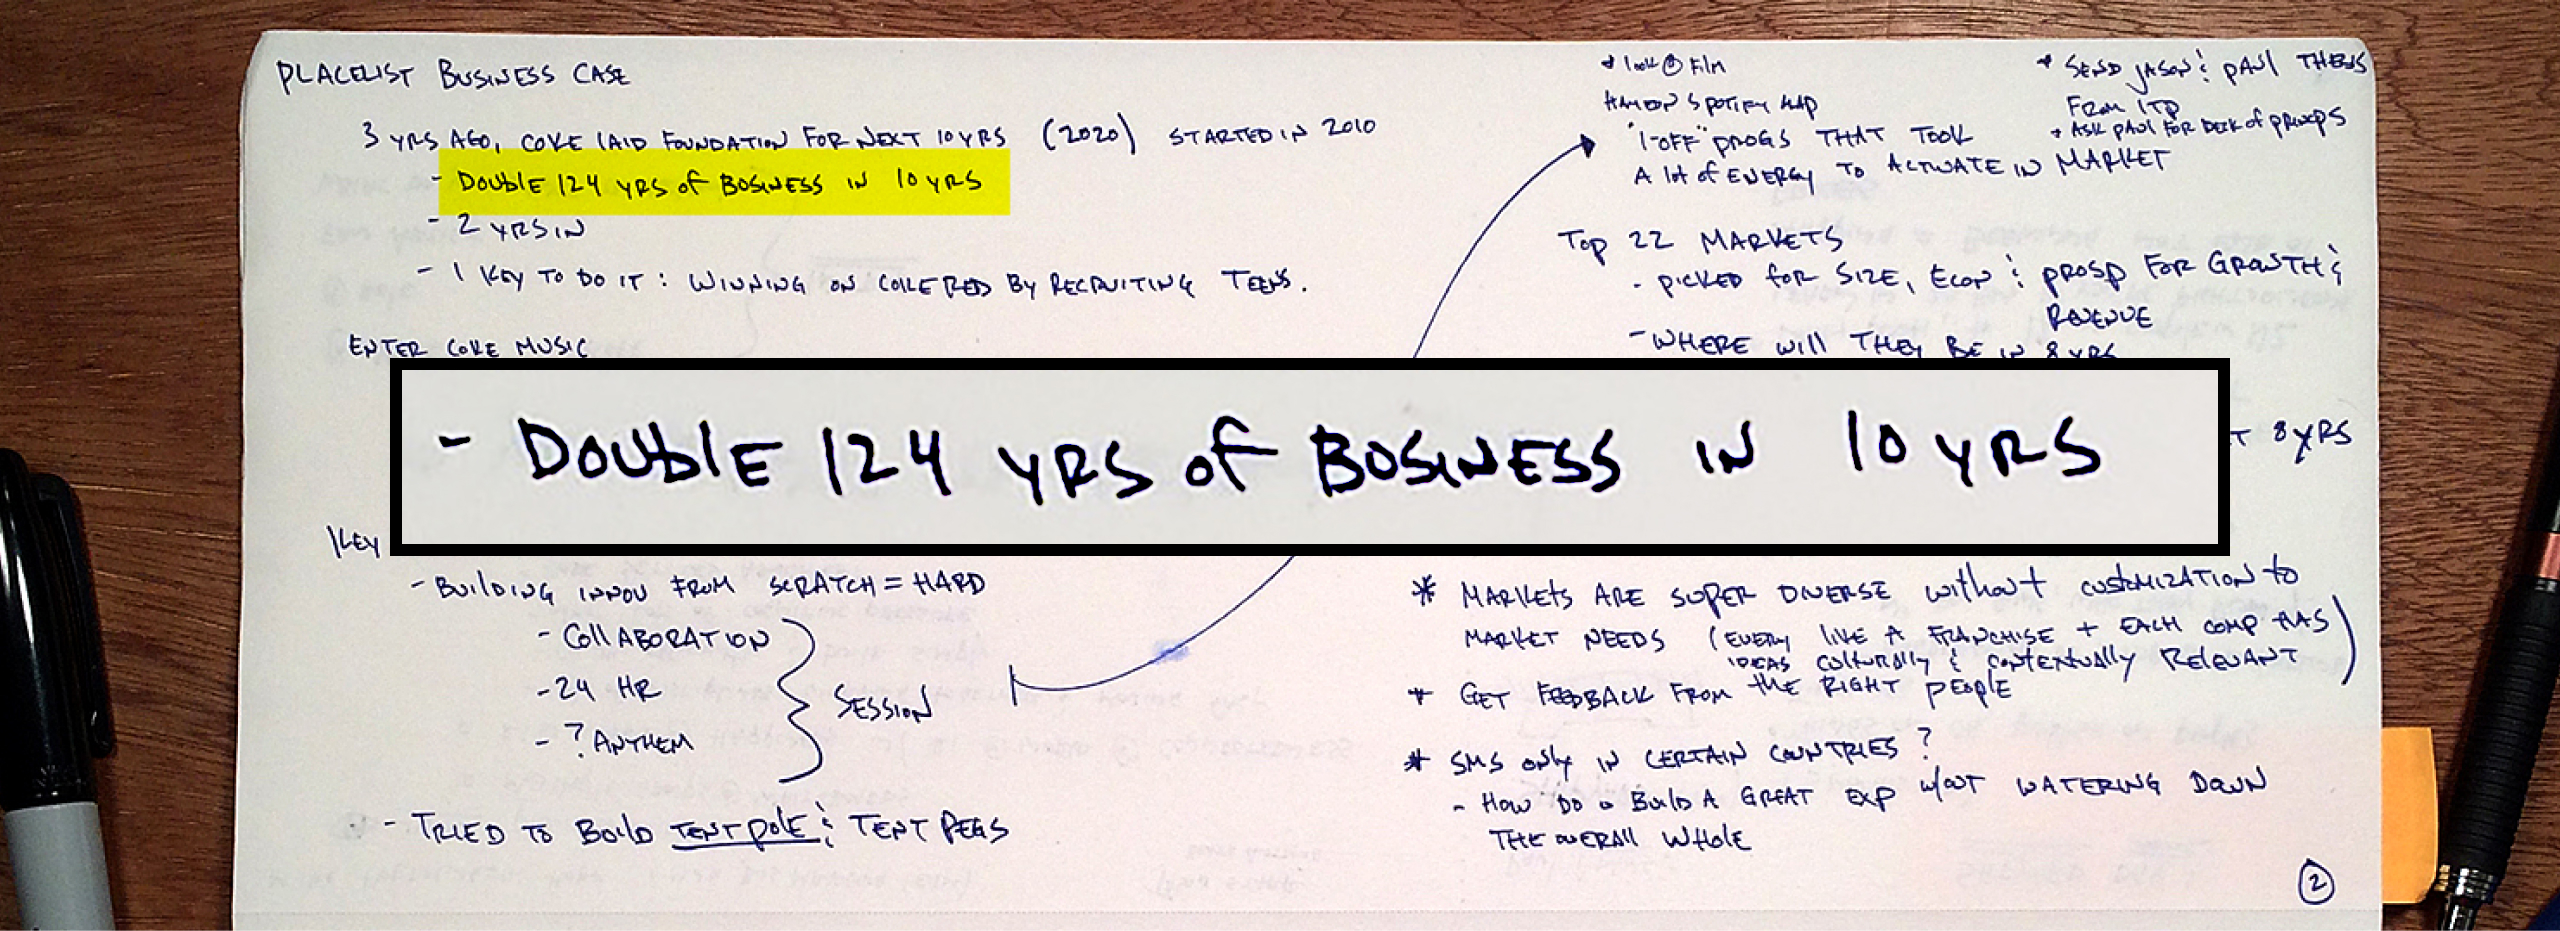 PLACELIST BUSINESS CASE
3 YRS AGO, COKE LAID FOUNDATION FOR NEXT 10 YRS (2020) STARTED IN 2010
- DOUBLE 124 YRS OF BUSINESS IN 10 YRS
- 2 YRS IN
- 1 KEY TO DO IT : WINNING ON COKE RED BY RECRUITING TEENS.
ENTER COKE MUSIC
- DOUBLE 124 YRS OF BUSINESS IN 10 YRS
KEY
- BUILDING INNOV FROM SCRATCH = HARD
- COLLABORATION
- 24 HR
- ? ANTHEM
SESSION
- TRIED TO BUILD TENTPOLE & TENT PEGS
* look @ Film
SPOTIFY MAP
"1-OFF" PROGS THAT TOOK
A lot of ENERGY TO ACTIVATE IN MARKET
* SEND JASON & PAUL THESIS
FROM ITP
* ASK PAUL FOR DECK of PRINCIPS
TOP 22 MARKETS
- PICKED FOR SIZE, ECON & PROSP FOR GROWTH &
REVENUE
- WHERE will THEY BE IN 8 YRS
T 8 YRS
* MARKETS ARE SUPER DIVERSE without CUSTOMIZATION to
MARKET NEEDS (EVERY LIKE A FRANCHISE + EACH COMP HAS
IDEAS CULTURALLY & CONTEXTUALLY RELEVANT)
* GET FEEDBACK FROM THE RIGHT PEOPLE
* SMS only IN CERTAIN COUNTRIES?
- HOW DO BUILD A GREAT EXP W/OUT WATERING DOWN
THE OVERALL WHOLE
2